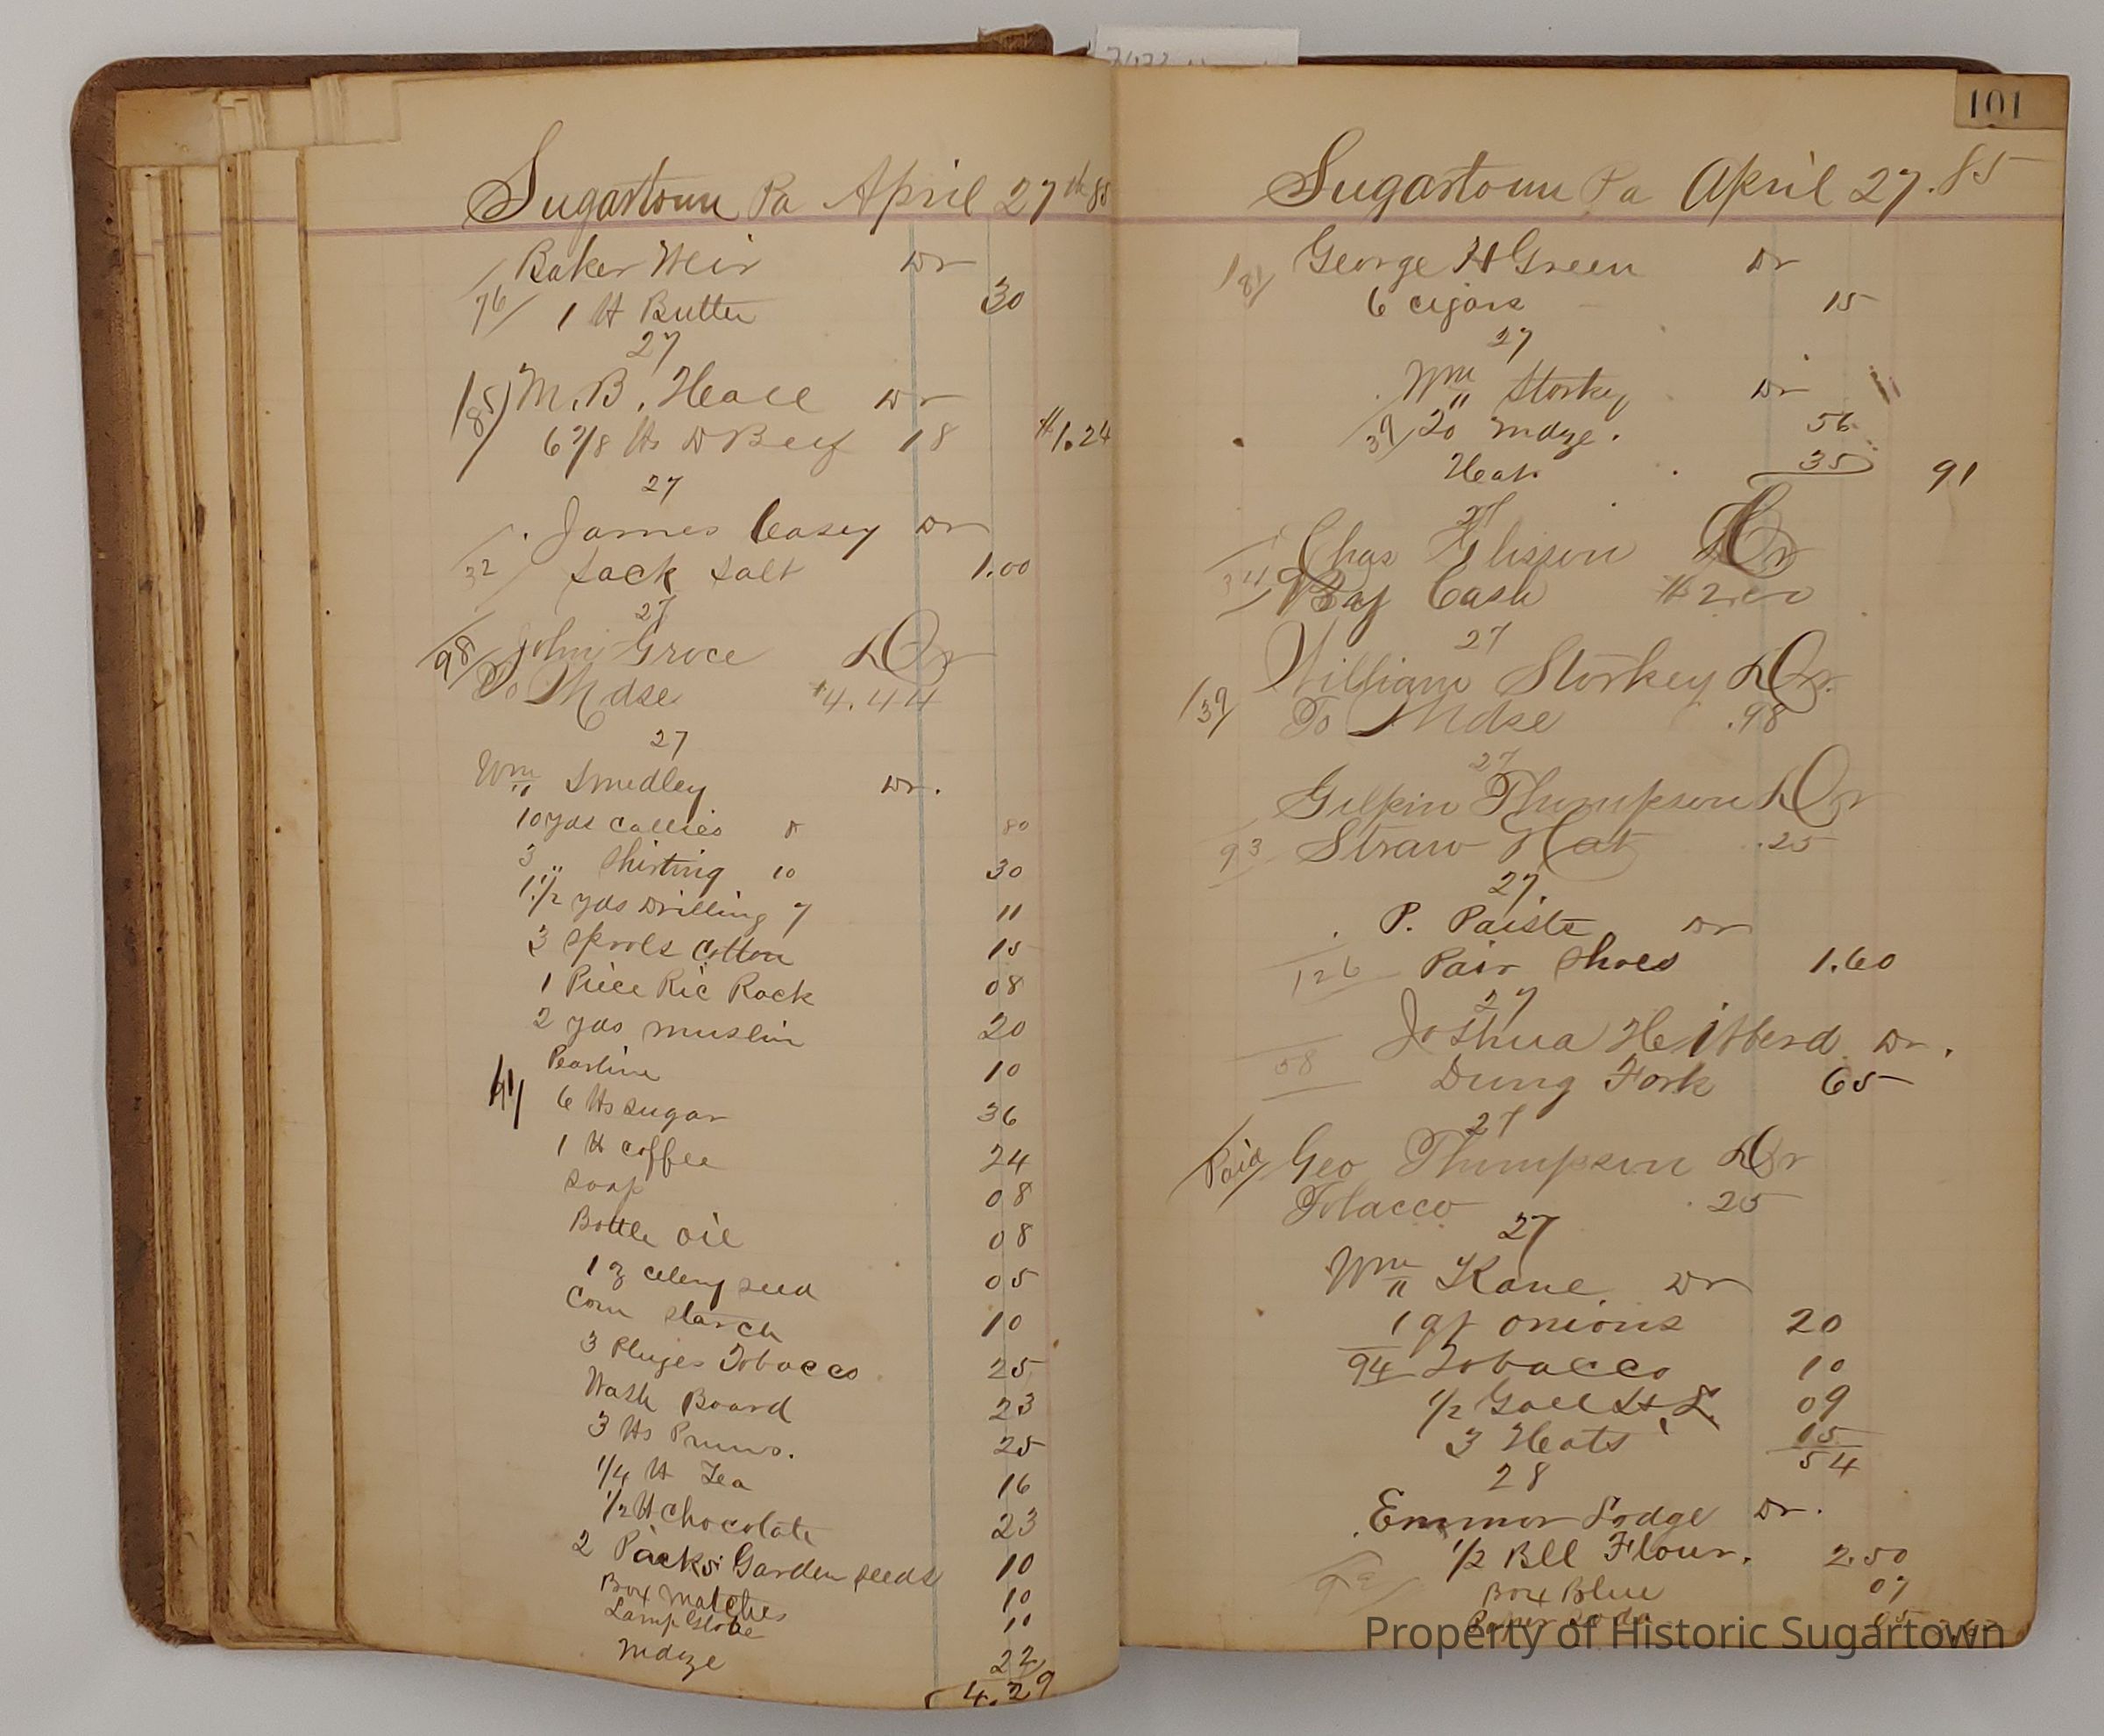 Sugartown Pa April 27th 85
Baker Weir Dr
76 1 lb Butter 30
27
M. B. Heace Dr
185 6 7/8 lbs D Beef 18 $1.24
27
James Casey Dr
32 Sack Salt 1.00
27
98 John Groce Dr
To Mdse 4.44
27
Wm Smedley Dr.
10 yds Callies 8 80
3 " Shirting 10 30
1 1/2 yds Drilling 7 11
3 Spools Cotton 15
1 Piece Ric Rack 08
2 yds muslin 20
Pearline 10
41 6 lbs Sugar 36
1 lb coffee 24
Soap 08
Bottle oil 08
1 oz celery seed 05
Corn Starch 10
3 Pluges Tobacco 25
Wash Board 23
3 lbs Pruns. 25
1/4 lb Tea 16
1/2 lb Chocolate 23
2 Packs Garden seeds 10
Box matches 10
Lamp Globe 10
mdze 22
4.29
101
Sugartown Pa April 27. 85
George H Green Dr
181 6 cigars 15
27
Wm Storkey Dr
39 20 mdze. 56
Heat. 35 91
27
Chas Glisson Dr
34 By Cash $2.00
27
William Storkey Dr.
139 To Mdse .98
27
Gilpin Thompson Dr
93 Straw Hat .25
27
P. Paiste Dr
126 Pair Shoes 1.60
27
Joshua Hibberd Dr.
58 Dung Fork 65
27
Paid Geo Thompson Dr
Tobacco .25
27
Wm Kane Dr
1 qt onions 20
94 Tobacco 10
1/2 Gall 09
3 Heats 15
54
28
Emmor Lodge Dr.
1/2 Bll Flour. 2.50
Box Blue 07
Paper Soda 05
Property of Historic Sugartown